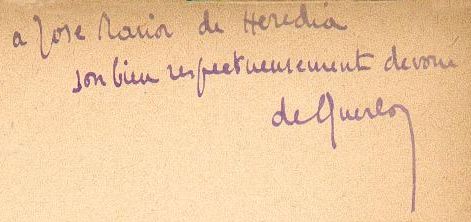 a Jose Maria de Heredia
son bien respectueusement devoué
de Querlon